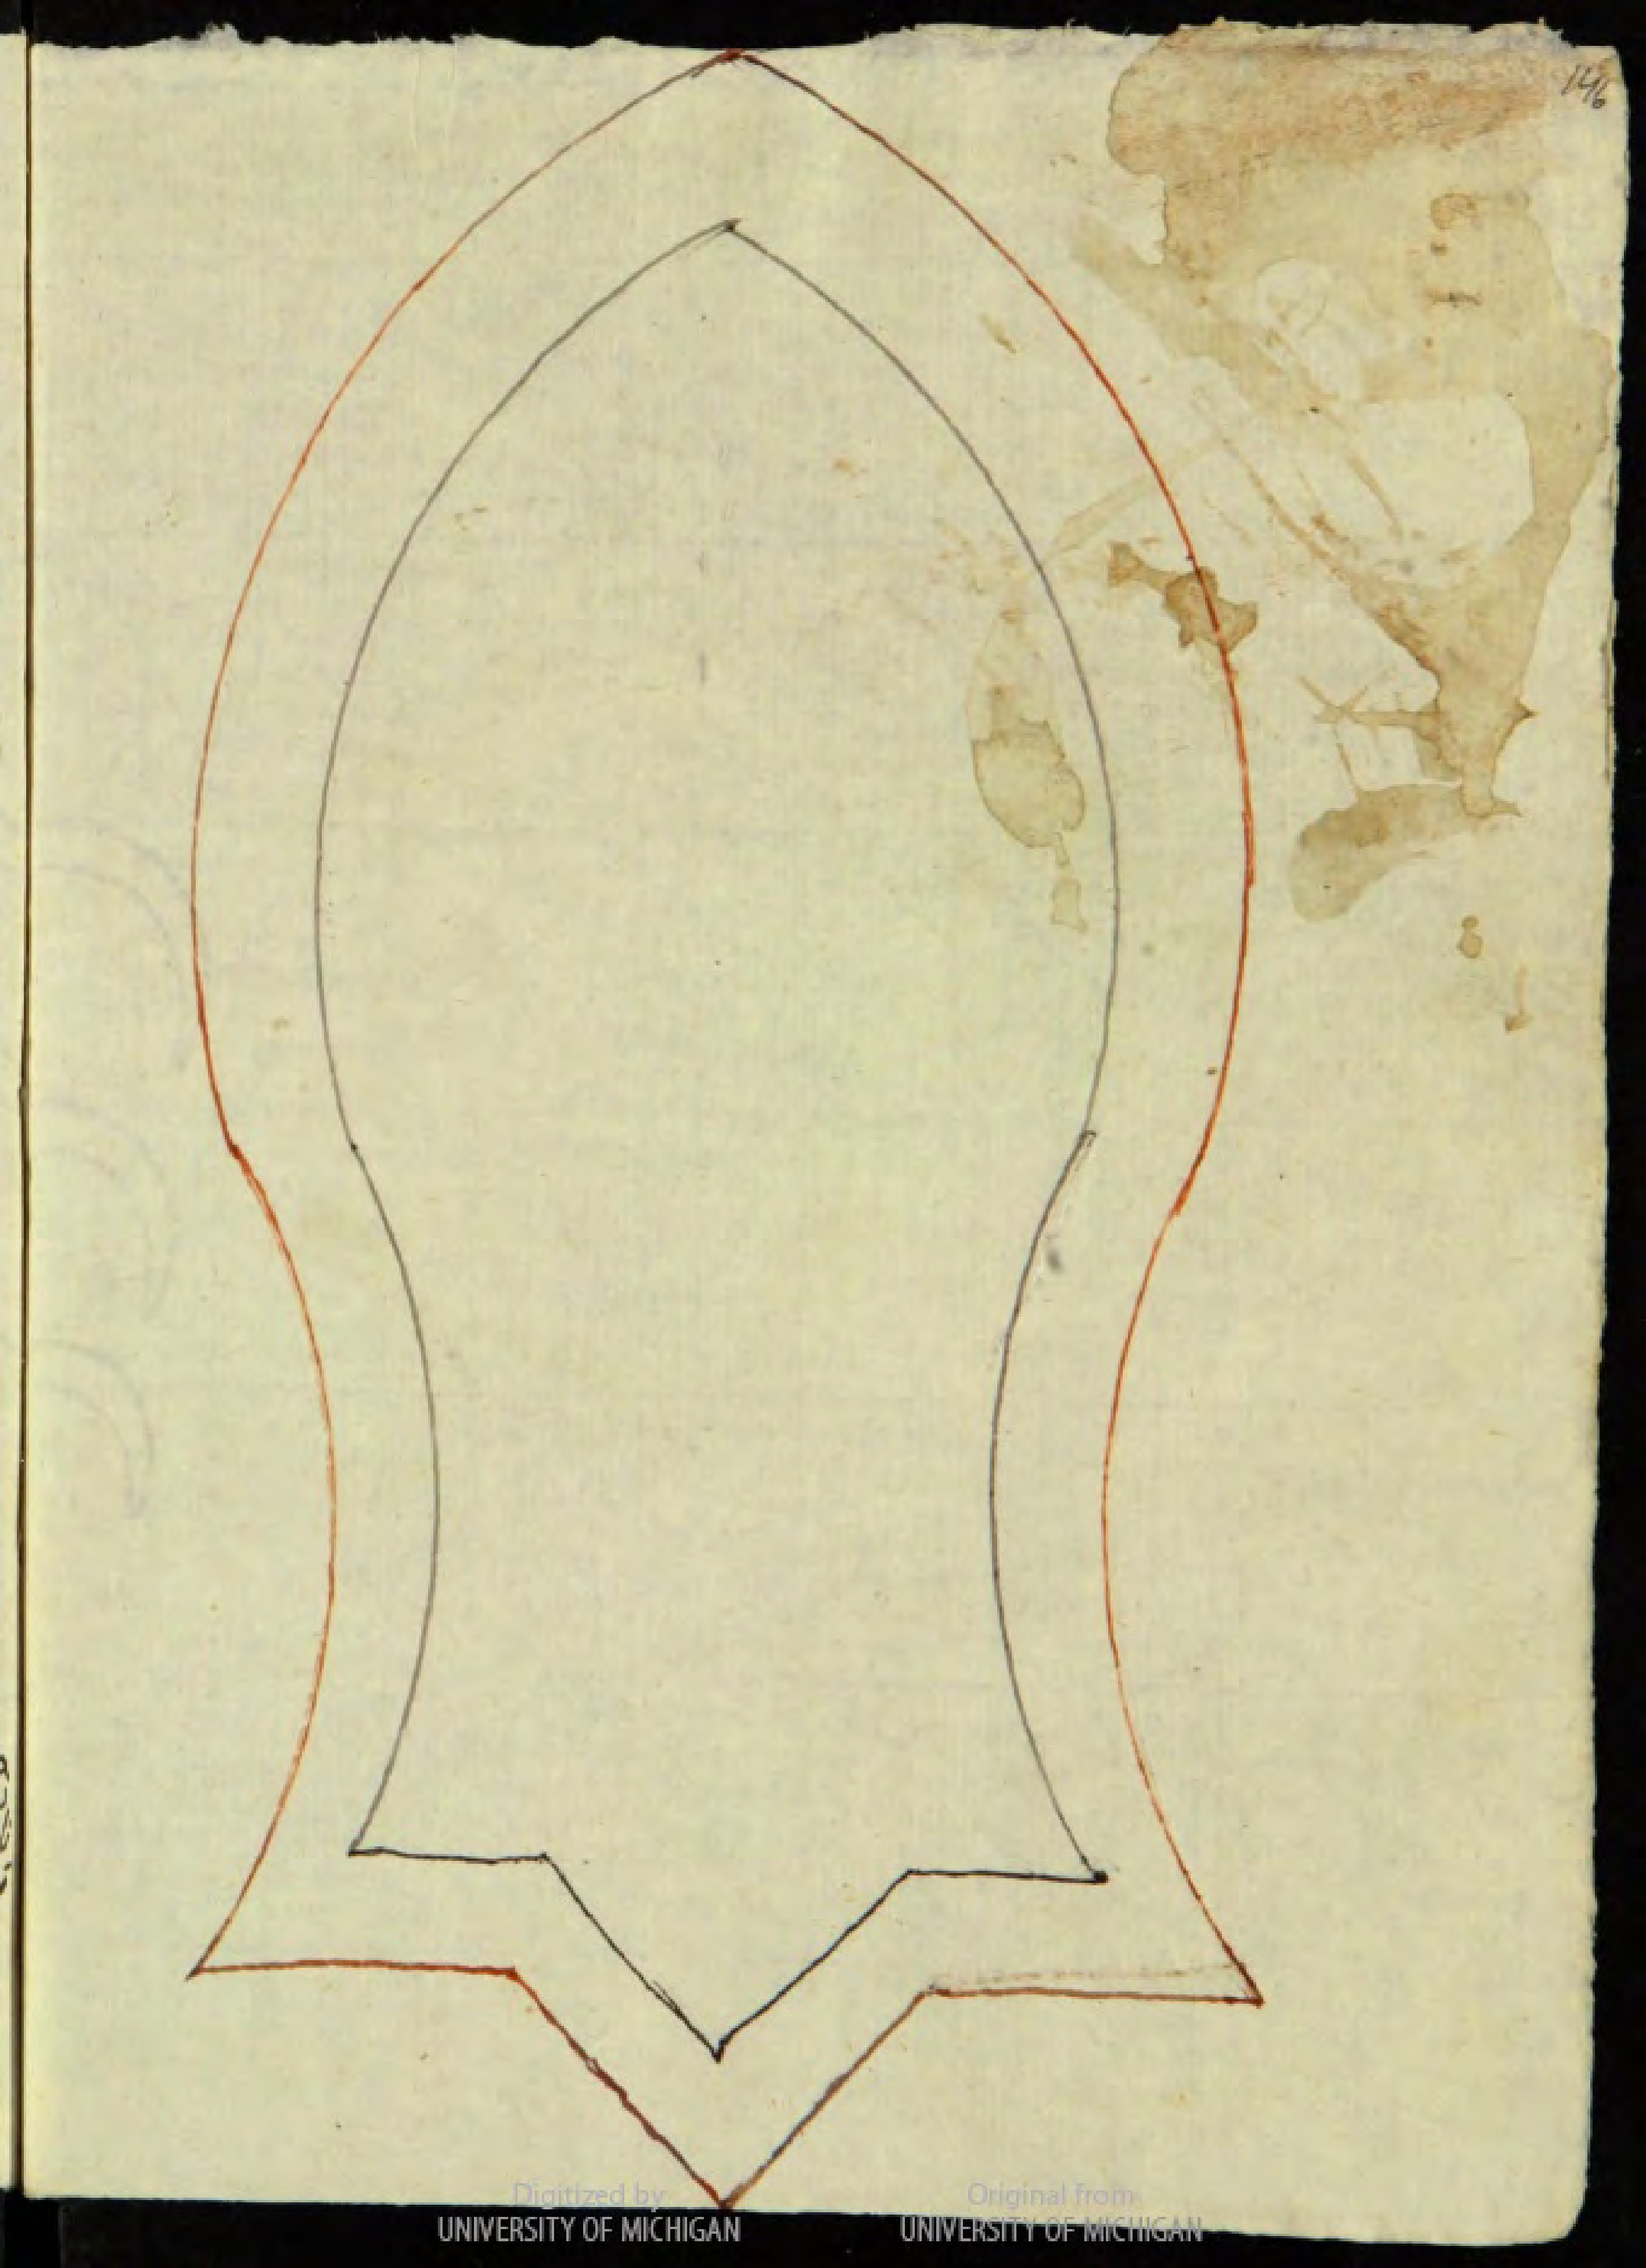 146
Digitized by
UNIVERSITY OF MICHIGAN
Original from
UNIVERSITY OF MICHIGAN